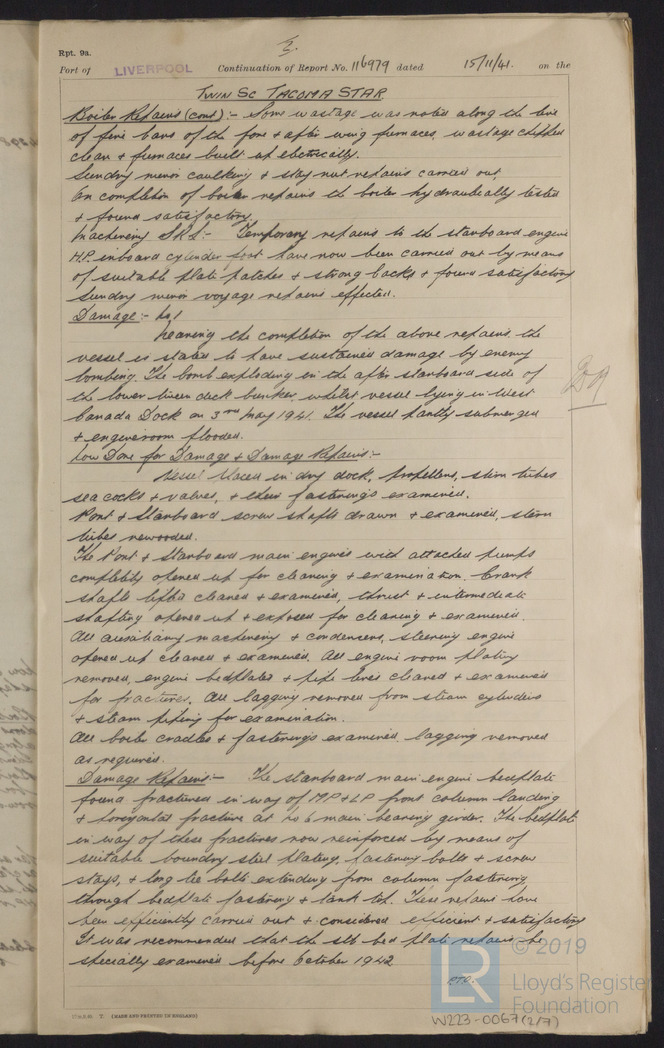 2.
Rpt. 9a.
Port of LIVERPOOL Continuation of Report No. 116979 dated 15/11/41. on the
TWIN SC TACOMA STAR
Boiler Repairs (cont) :- Some wastage was noted along the line
of fire bars of the fore & after wing furnaces, wastage chipped
clean & furnaces built up electrically.
Sundry minor caulking & stay nut repairs carried out.
On completion of boiler repairs the boiler hydraulically tested
& found satisfactory.
Machinery S.R.S:- Temporary repairs to the starboard engine
H.P. inboard cylinder foot have now been carried out by means
of suitable plate patches & strong backs & found satisfactory
Sundry minor voyage repairs effected.
Damage :- No 1
Nearing the completion of the above repairs the
vessel is stated to have sustained damage by enemy
bombing. The bomb exploding in the after starboard side of
the lower tween deck bunker, whilst vessel lying in West
Canada Dock on 3rd May 1941. The vessel partly submerged
& engineroom flooded.
29
Now Done for Damage & Damage Repairs :-
Vessel placed in dry dock, propellers, stern tubes
sea cocks & valves, & their fastenings examined.
Port & Starboard screw shafts drawn & examined, stern
tubes rewooded.
The Port & Starboard main engines with attached pumps
completely opened up for cleaning & examination. Crank
shafts lifted cleaned & examined, thrust & intermediate
shafting opened up & exposed for cleaning & examined.
All auxiliary machinery & condensers, steering engine
opened up cleaned & examined. All engine room plating
removed, engine bedplates & pipe lines cleaned & examined
for fractures. All lagging removed from steam cylinders
& steam piping for examination.
All boiler cradles & fastenings examined lagging removed
as required.
Damage Repairs :- The starboard main engine bedplate
found fractured in way of MP & LP front column landing
& horizontal fracture at No 6 main bearing girder. The bedplate
in way of these fractures now reinforced by means of
suitable boundry steel plating, fastening bolts & screw
stays, & long tie bolts extending from column fastening
through bedplate fastening & tank top. These repairs have
been efficiently carried out & considered efficient & satisfactory
It was recommended that the stb bed plate repairs be
specially examined before October 1942
P.T.O.
T. (MADE AND PRINTED IN ENGLAND)
LR © 2019
Lloyd's Register
Foundation
W223-0067(2/7)